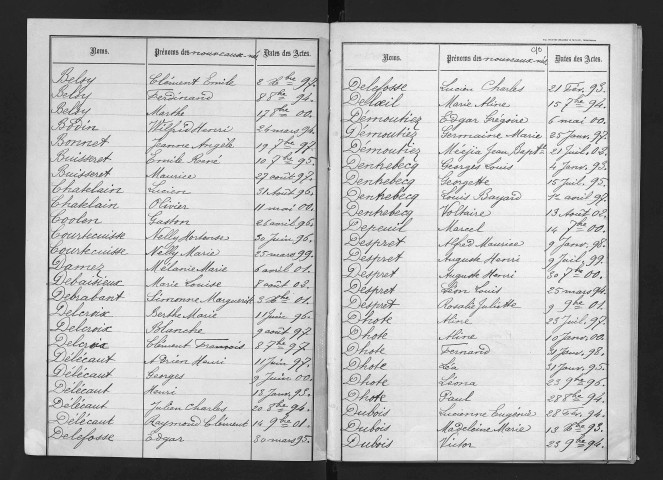 Noms. Prénoms des nouveaux-nés Dates des Actes.
Beloy Clément Emile 2 Xbre 97.
Beloy Ferdinand 8 8bre 94.
Beloy Marthe 17 8bre 00.
Wilfrid Henri 26 mars 96.
Bonnet Jeanne Angèle 19 7bre 97.
Buisseret Emile René 10 7bre 95.
Buisseret Maurice 27 août 97.
Chatelain Lucien 31 Août 96.
Chatelain Olivier 11 mai 00.
Coolen Gaston 26 avril 96.
Courtecuisse Nelly Hortense 30 juin 96.
Courtecuisse Nelly Marie 25 mars 99.
Damez Mélanie Marie 6 avril 01.
Debaisieux Marie Louise 8 août 03.
Debrabant Simonne Marguerite 3 Xbre 01.
Delcroix Berthe Marie 11 juin 96.
Delcroix Blanche 9 août 97.
Delcroix Clément François 8 7bre 97.
Délécaut Adrien Henri 11 juin 97.
Délécaut Georges 9 juin 00.
Délécaut Henri 13 Janv. 93.
Délécaut Julien Charles 20 8bre 94.
Délécaut Raymond Clément 14 9bre 01.
Delefosse Edgar 30 mars 95.
Noms. Prénoms des nouveaux-nés Dates des Actes.
Delefosse Lucien Charles 21 Fév. 93.
Delœil Marie Aline 15 7bre 94.
Demoutiez Edgar Grégoire 6 mai 00.
Demoutiez Germaine Marie 25 Janv. 97.
Demoutiez Jean Bapte 21 Juil. 03.
Denhebecq Georges Louis 4 Janv. 93.
Denhebecq Georgette 15 Juil. 95.
Denhebecq Louis Bayard 12 août 97.
Denhebecq Voltaire 13 Août 02.
Depeuil Marcel 14 7bre 00.
Despret Alfred Maurice 9 Janv. 98.
Despret Auguste Henri 9 Juil. 99.
Despret Auguste Henri 30 7bre 00.
Despret Léon Louis 25 mars 94.
Despret Rosalie Juliette 9 9bre 01.
Dhote Aline 23 Juil. 97.
Dhote Aline 10 Janv. 00.
Dhote Fernand 31 Janv. 98.
Dhote Léa 31 Janv. 95.
Dhote Léona 23 9bre 96.
Dhote Paul 28 8bre 94.
Dubois Lucienne Eugénie 28 Fév. 94.
Dubois Madeleine Marie 13 Xbre 93.
Dubois Victor 23 9bre 94.